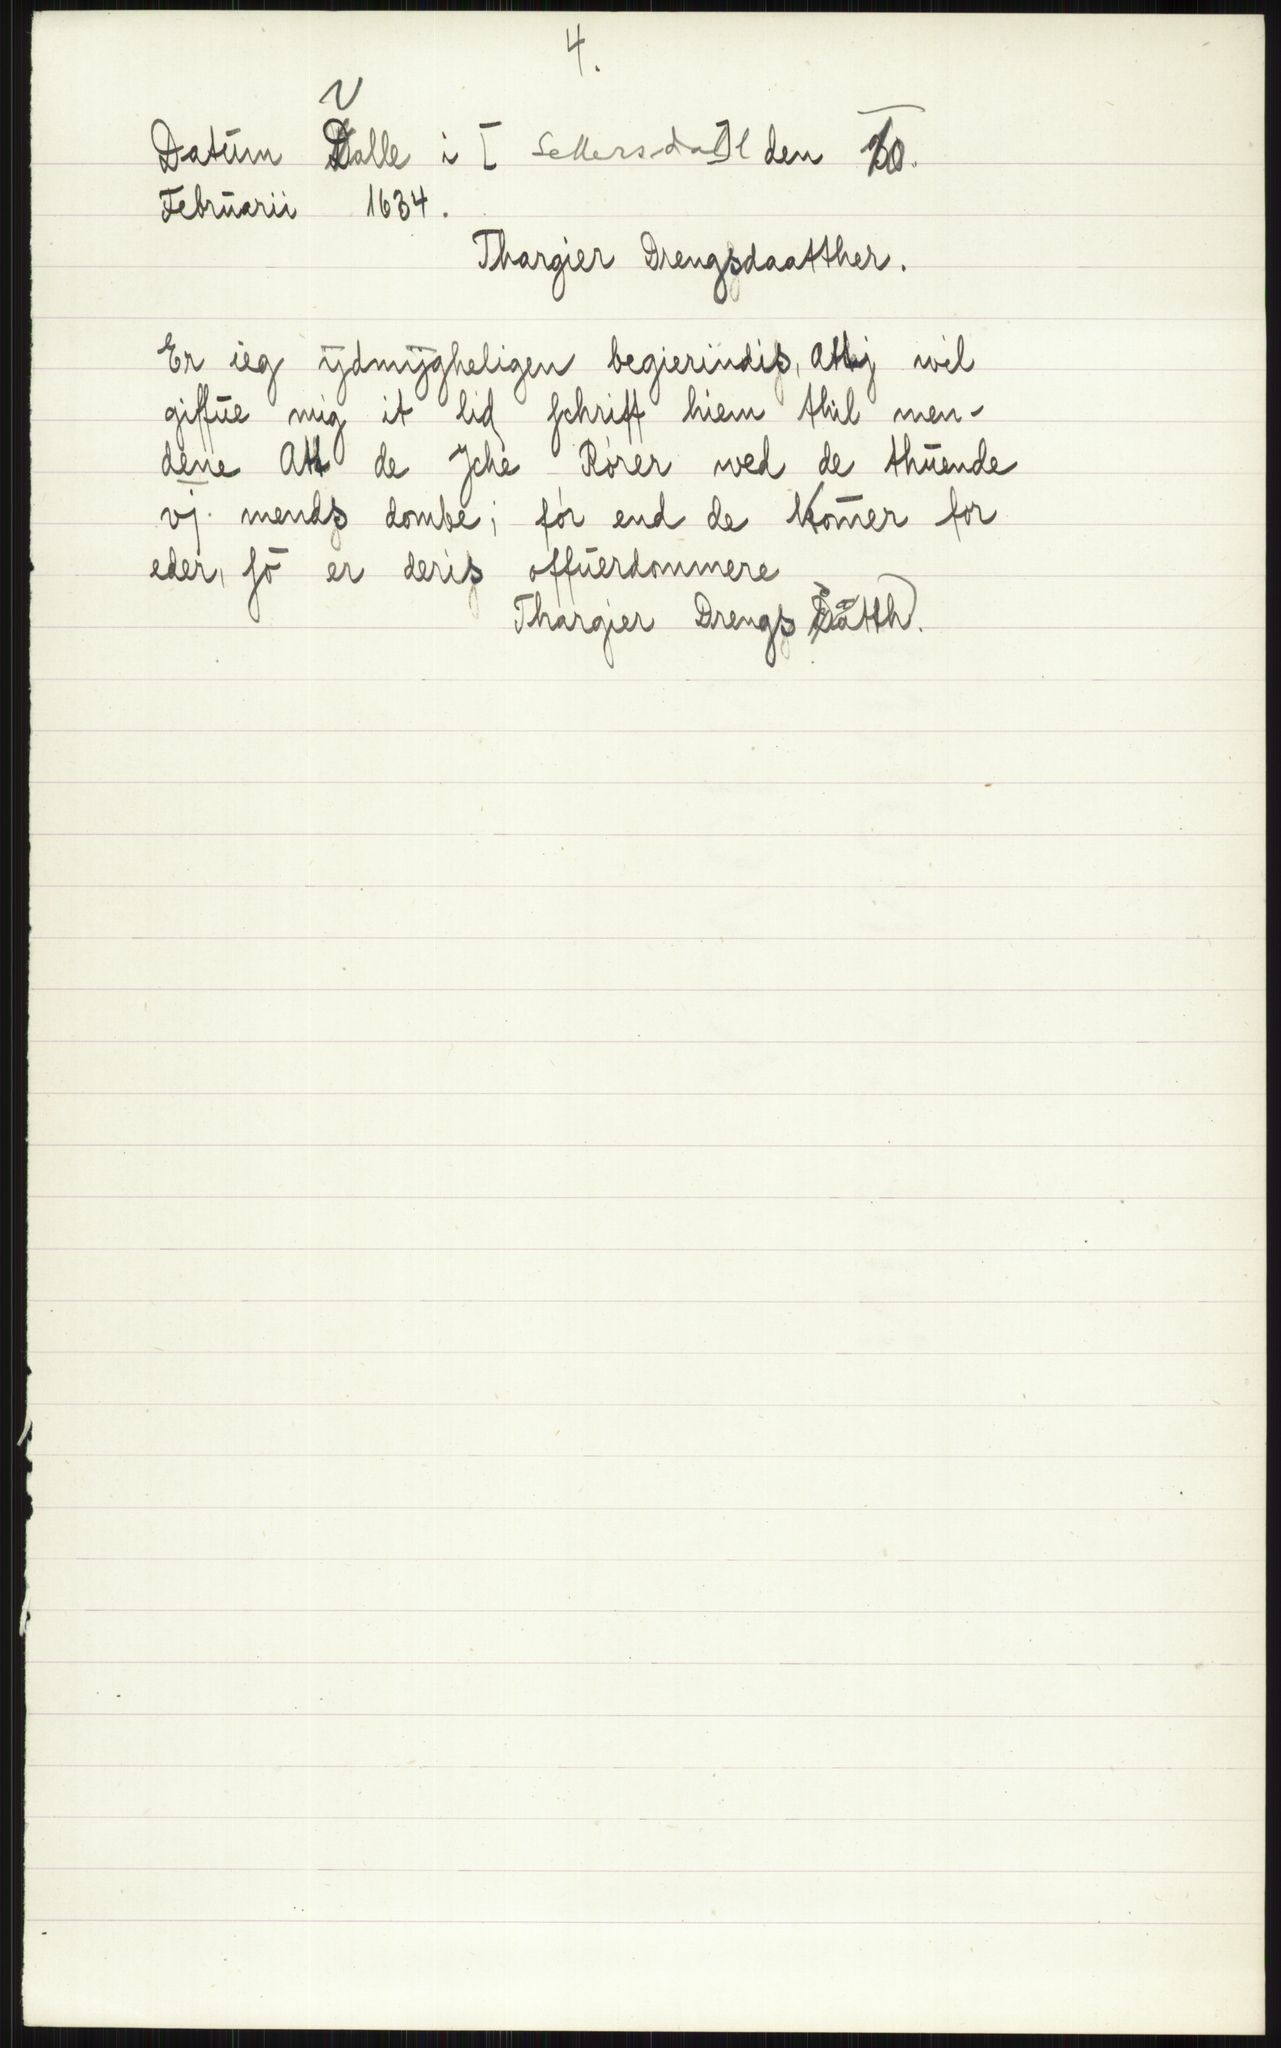 4.
Datum Valle i [Settersda]l den 10.
Februarii 1634.
Thargier Drengsdaatther.
Er ieg ÿdmÿgheligen begierindis, Attj wil
giffue mig it lid schrifft hiem thil men-
dene Att de Jche Rører wed de thuende
vj mends dombe; før end de Komer for
eder, so er deris offuerdommere
Thargier Drengs Datth.